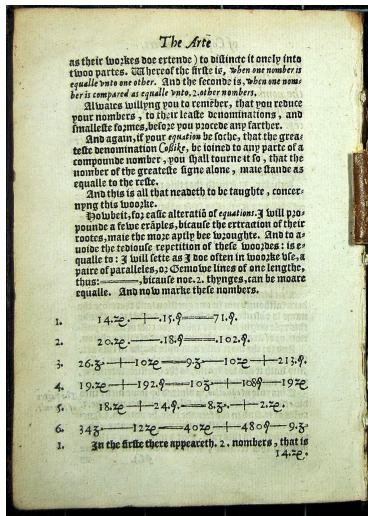 The Arte
as their workes doe extende) to distincte it onely into
twoo partes. Whereof the firste is, when one number is
equalle vnto one other. And the seconde is, when one nom-
ber is compared as equalle vnto, 2. other nombers.
Alwaies willyng you to remẽber, that you reduce
your nombers, to their leaste denominations, and
smalleste formes, before you procede any farther.
And again, if your equation be soche, that the grea-
teste denomination Cossike, be ioined to any parte of a
compounde nomber, you shall tourne it so, that the
nomber of the greateste signe alone, maie stande as
equalle to the reste.
And this is all that neadeth to be taughte, concer-
nyng this woorke.
Howbeit, for easie alteratiõ of equations. I will pro-
pounde a fewe exãples, bicause the extraction of their
rootes, maie the more aptly bee wroughte. And to a-
uoide the tediouse repetition of these woordes: is e-
qualle to: I will sette as I doe often in woorke vse, a
paire of paralleles, or Gemowe lines of one lengthe,
thus: =====, bicause noe. 2. thynges, can be moare
equalle. And now marke these nombers.
1. 14.ʐe.—+—.15.ϙ=====71.ϙ.
2. 20.ʐe.———.18.ϙ=====.102.ϙ.
3. 26.ʒ.—+—10ʐe=====9.ʒ———10ʐe—+—213.ϙ.
4. 19.ʐe—+—192.ϙ=====10ʒ—+—108ϙ———19ʐe
5. 18.ʐe—+—24.ϙ.=====8.ʒ.—+—2.ʐe.
6. 34ʒ———12ʐe=====40ʐe—+—480ϙ———9.ʒ
1. In the firste there appeareth. 2. nombers, that is
14.ʐe.